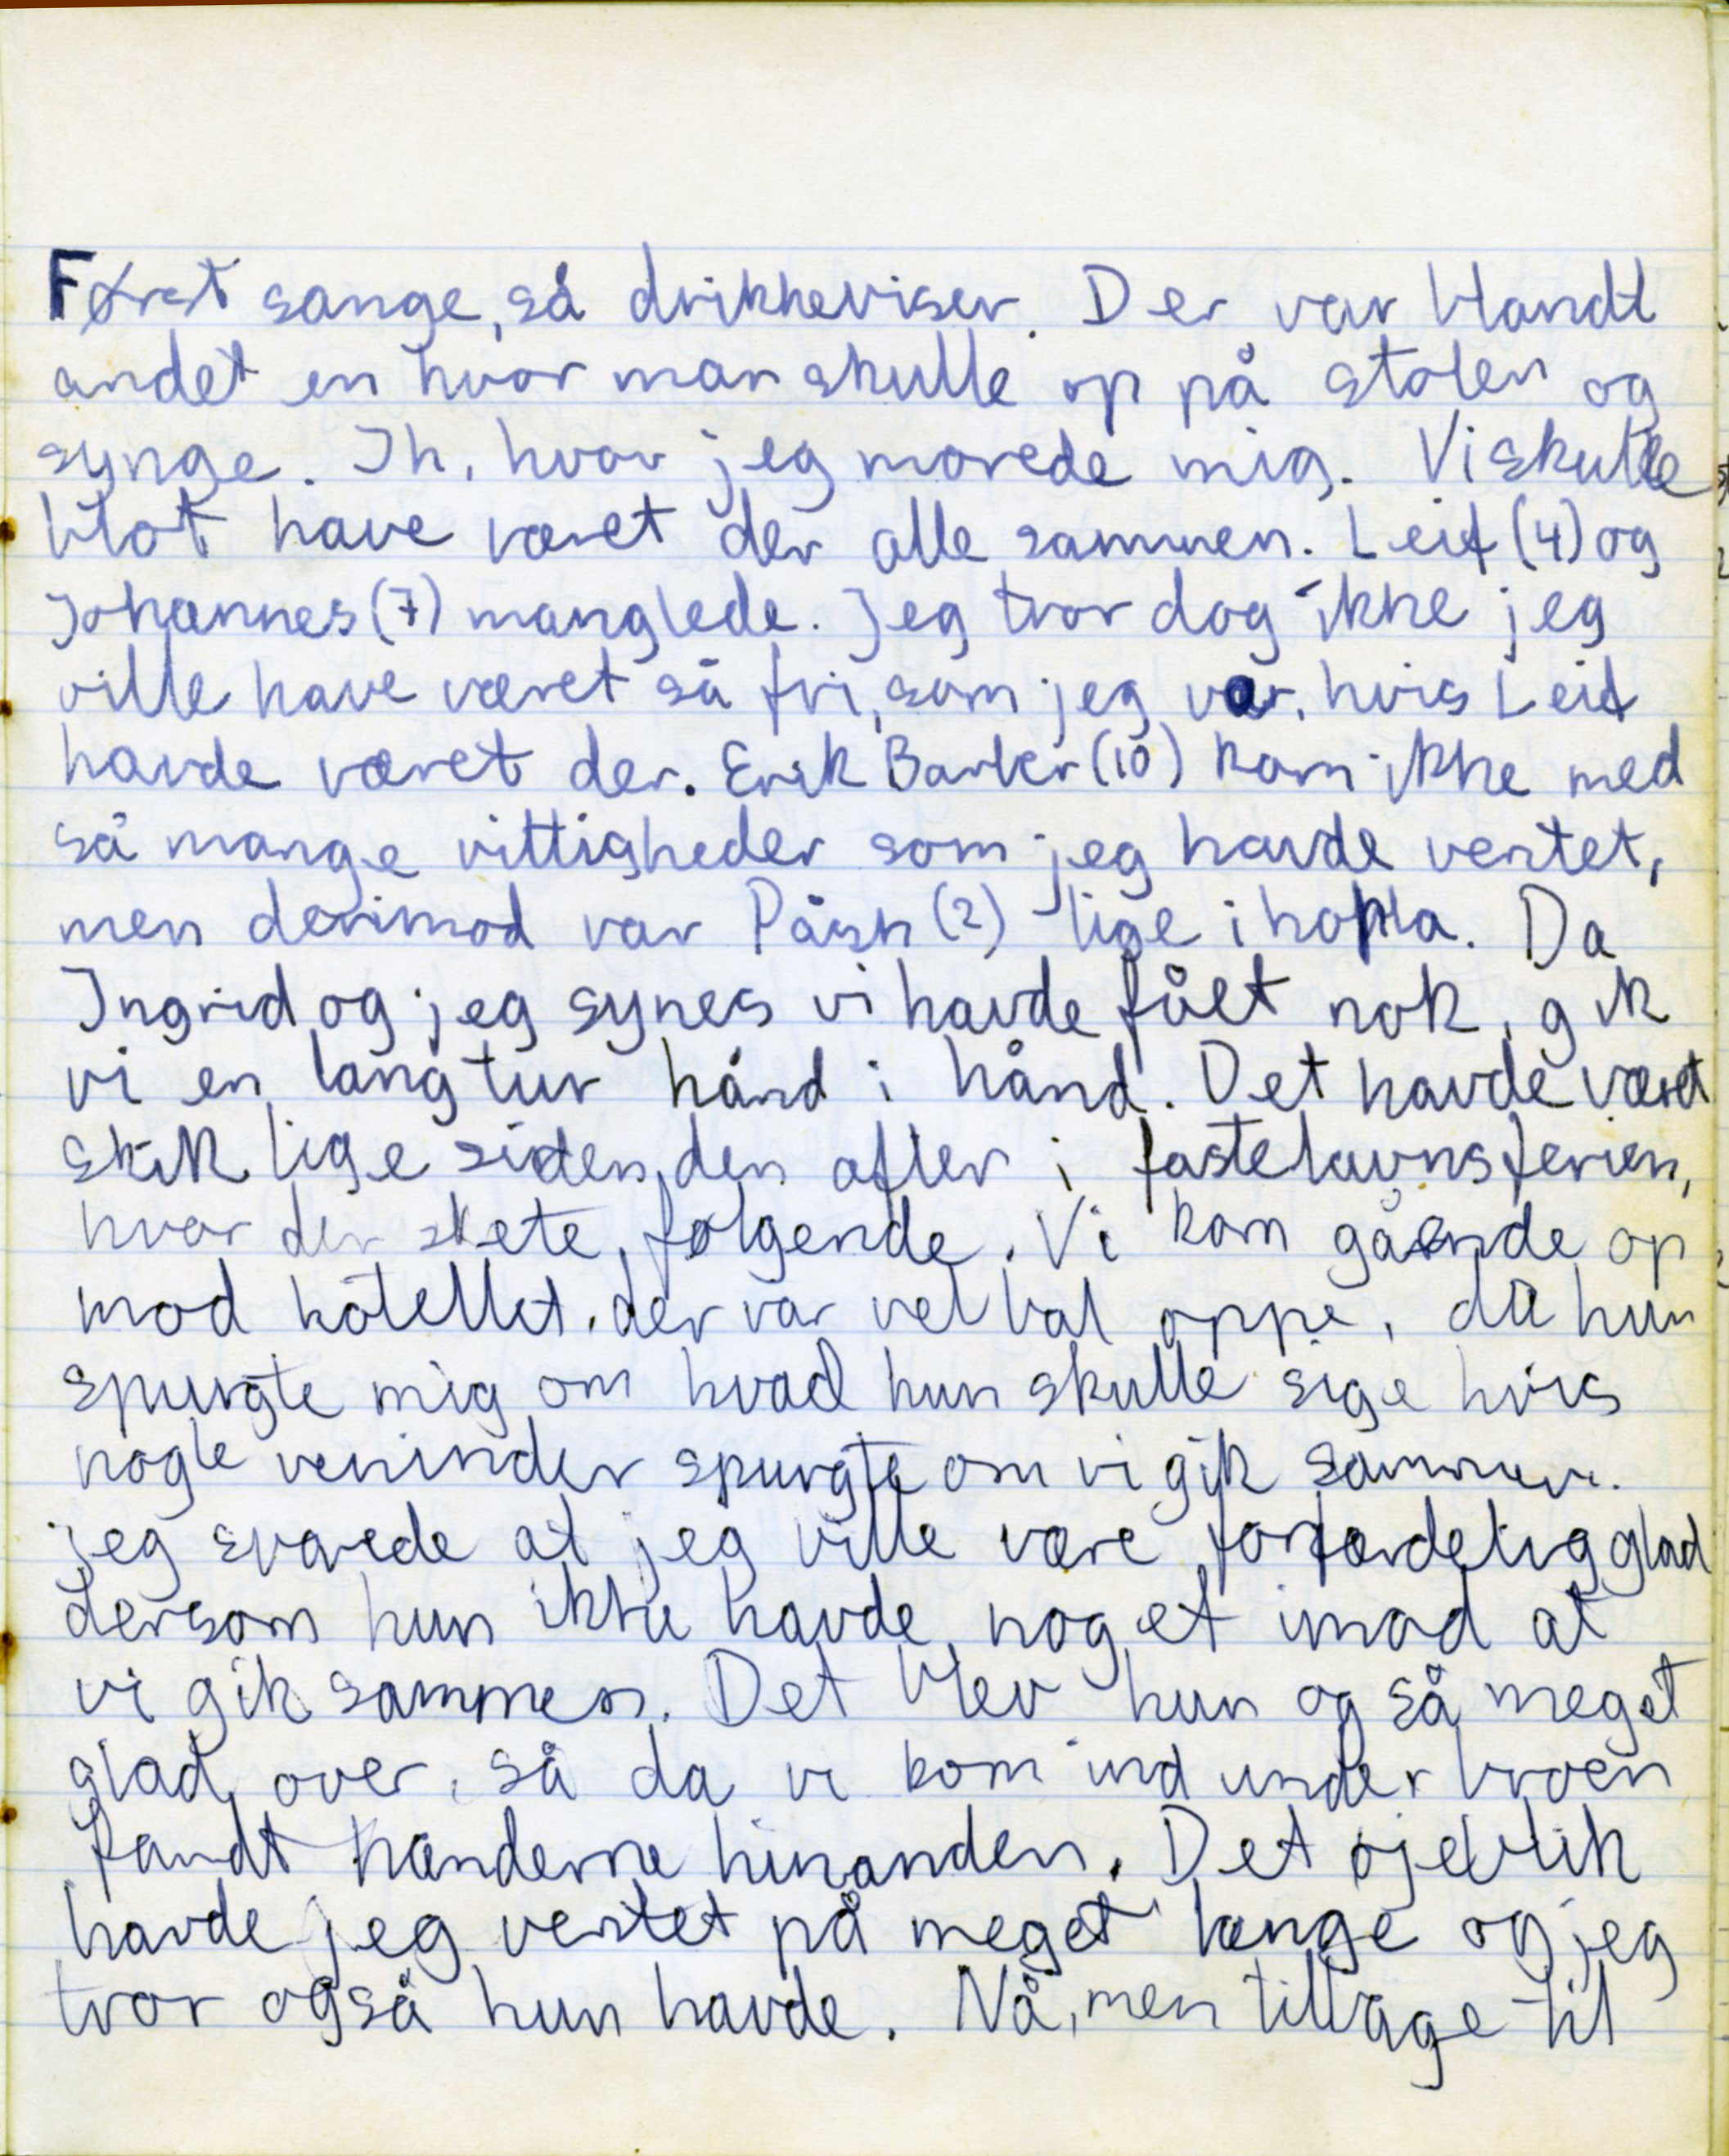 Først sange, så drikkeviser. Der var blandt
andet en hvor man skulle op på stolen og
synge. Ih, hvor jeg morede mig. Vi skulle
blot have været der alle sammen. Leif (4) og
Johannes (7) manglede. Jeg tror dog ikke jeg
ville have været så fri, som jeg var, hvis Leif
havde været der. Erik Barber (10) kom ikke med
så mange vittigheder som jeg havde ventet,
men derimod var (2) lige i hopla. Da
Ingrid og jeg synes vi havde fået nok, gik
vi en lang tur hånd i hånd. Det havde været
skik lige siden den aften i fastelavnsferien,
hvor der skete følgende. Vi kom gående op
mod hotellet. der var vel bal oppe, da hun
spurgte mig om hvad hun skulle sige hvis
nogle veninder spurgte om vi gik sammen.
jeg svarede at jeg ville være forfærdelig glad
dersom hun ikke havde noget imod at
vi gik sammen. Det blev hun også meget
glad over, så da vi kom ind under broen
fandt hænderne hinanden. Det øjeblik
havde jeg ventet på meget længe og jeg
tror også hun havde. Nå, men tilbage til